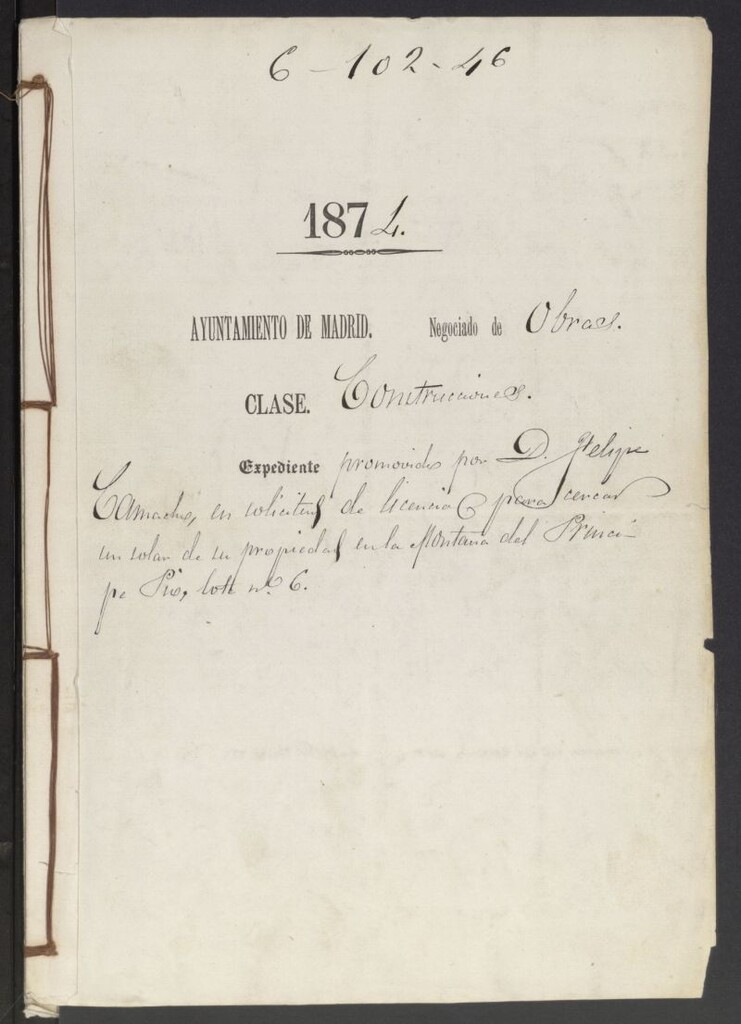 6-102-46
1874.
AYUNTAMIENTO DE MADRID. Negociado de Obras.
CLASE. Construcciones.
Expediente promovido por D. Felipe
Camacho, en solicitud de licencia para cercar
un solar de su propiedad en la Montaña del Princi-
pe Pio, lote nº 6.